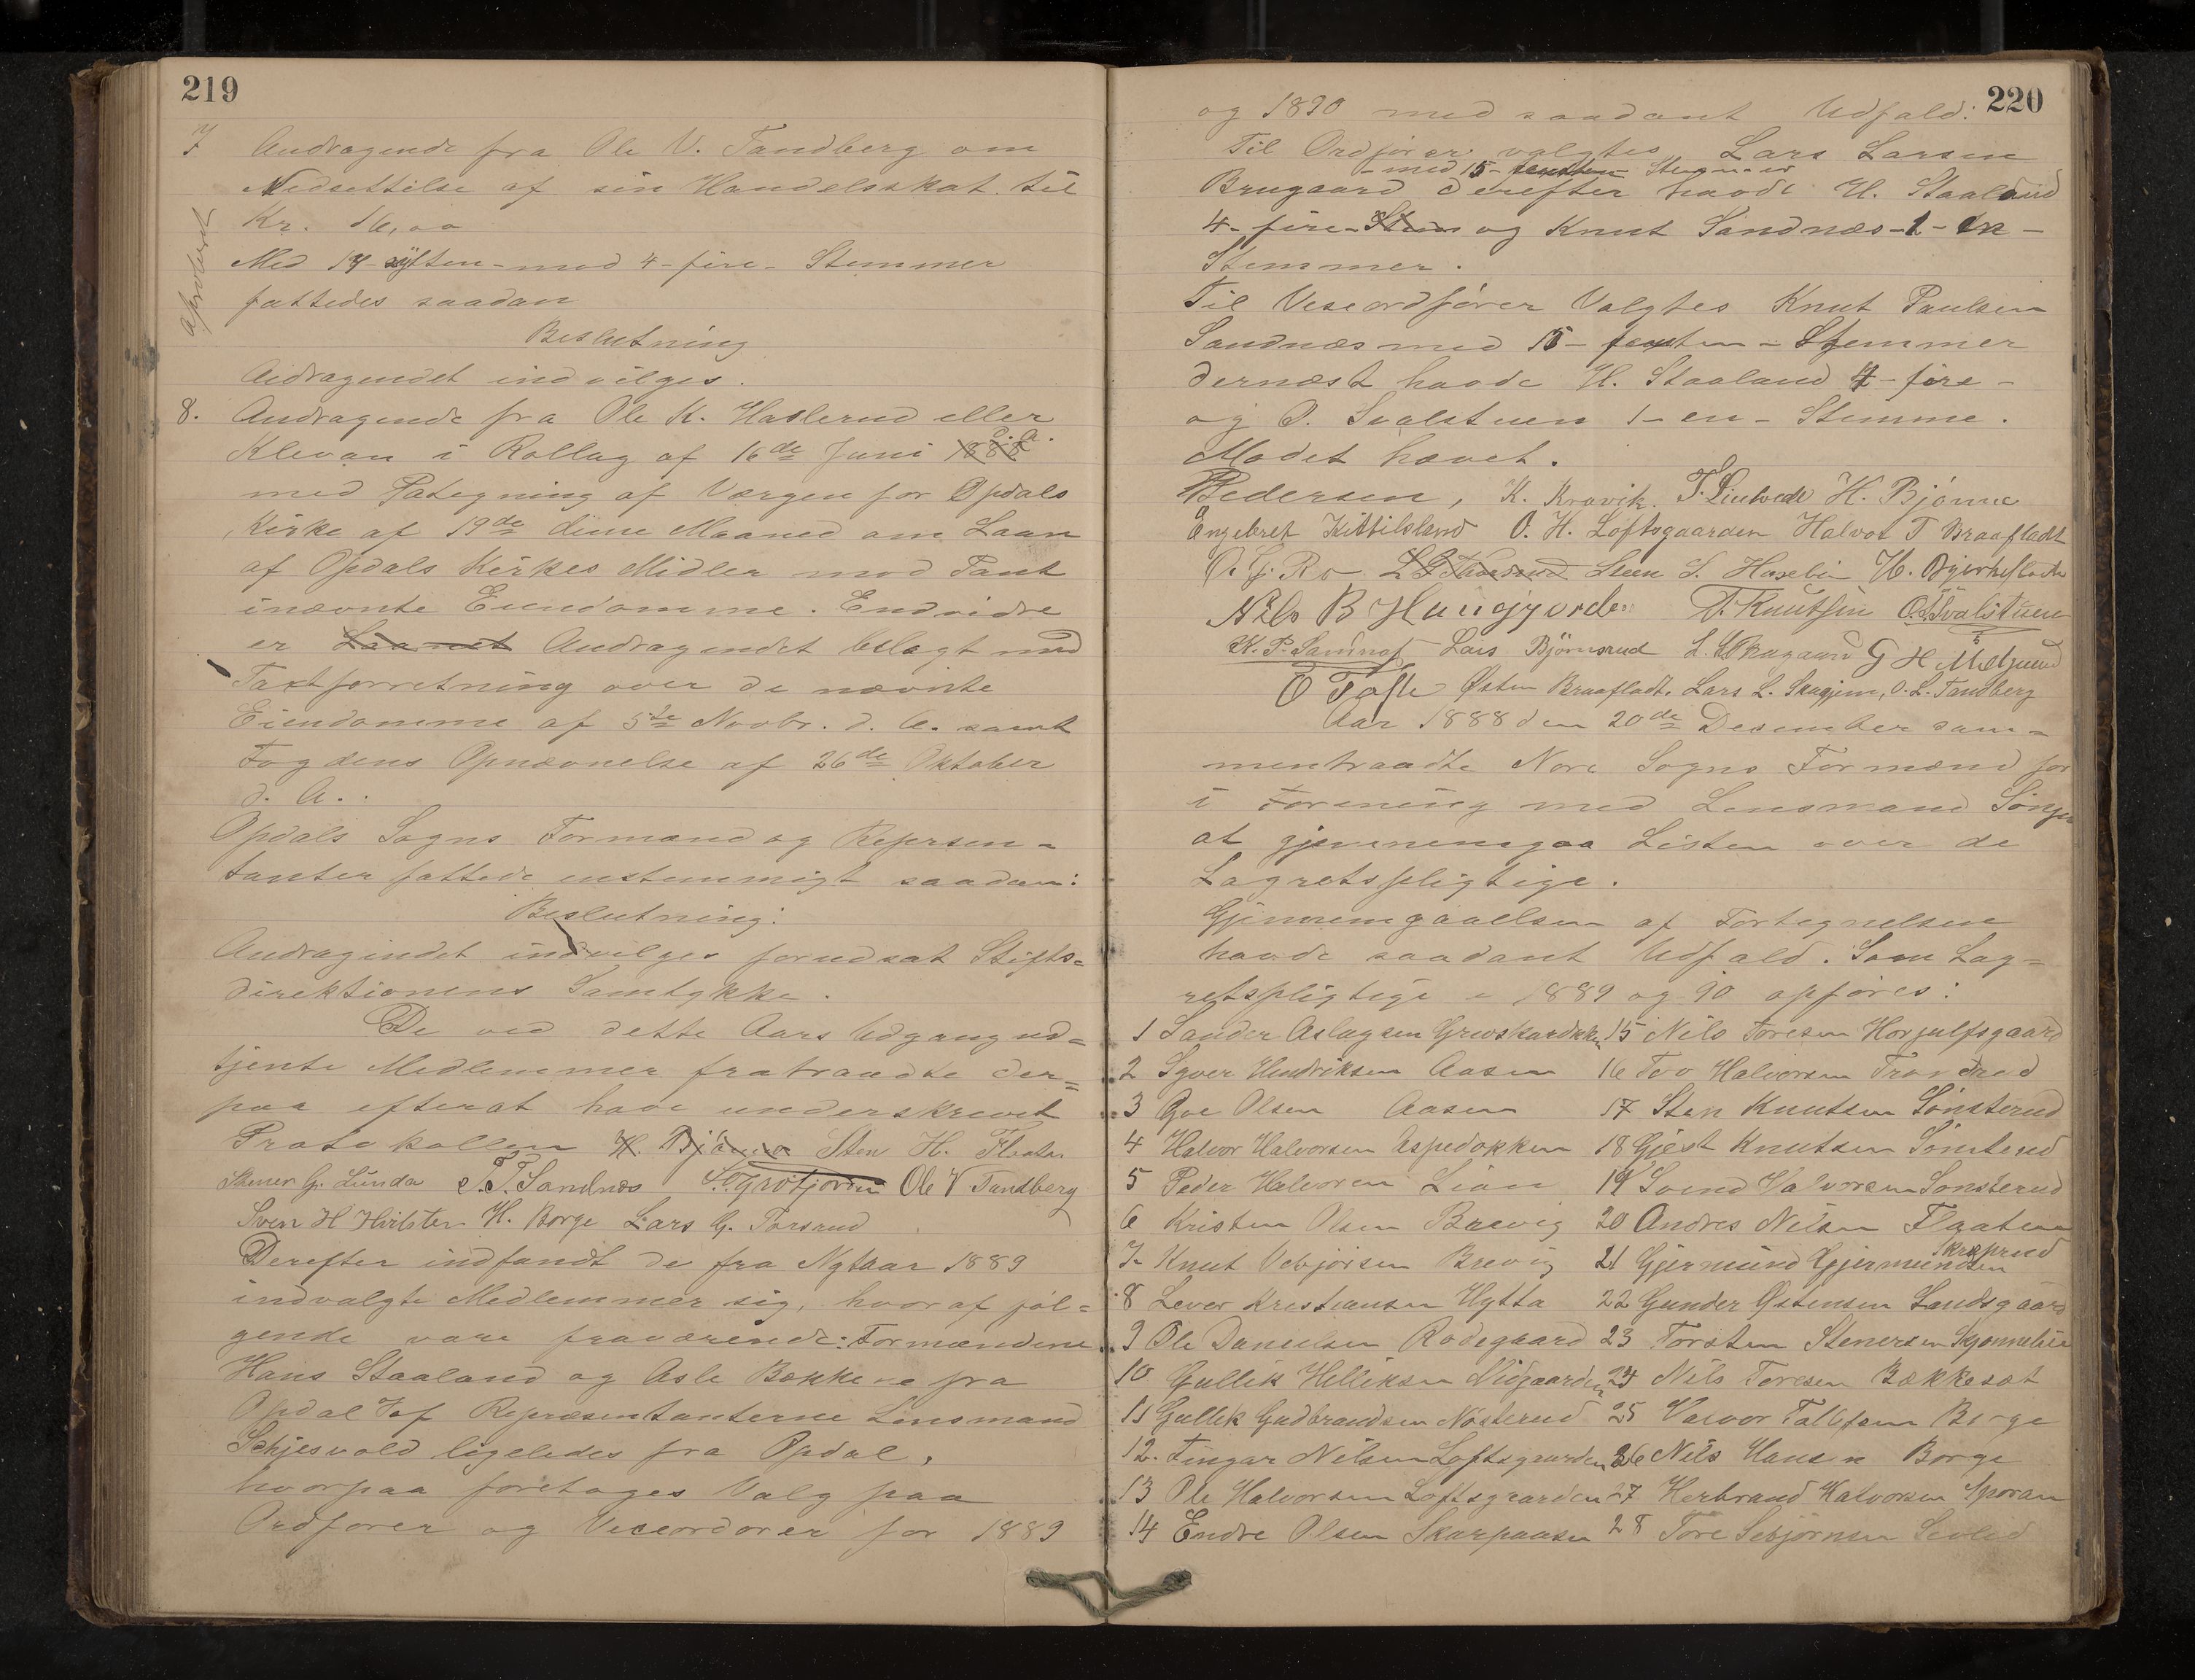 219
7 Andragende fra Ole V. Tandberg om
Nedsettilse af sin Handelsskat til
Kr. 16,00
Med 17-sytten-mod 4-fire- Stemmer
fattedes saadan
Beslutning
Andragendet indvilges.
8. Andragende fra Ole K. Haslerud eller
Klevan i Rollag af 16de Juni 1888 d. A.
med Påtegning af Værgen for Opdals
Kirke af 19de dine Maaned om Laan
af Opdals Kirkes Midler mod Pant
inævnte Eiendomme. Endvidre
er Laanet Andragendet belagt med
Taxtforretning over de nævnte
Eiendomme af 5te Novbr. d. A. samt
Fogdens Opnævnelse af 26de Oktober
d. A..
Opdals Sogns Formænd og Reprsen-
tanter fattede enstemmigt saadan:
Beslutning:
Andragindet indvilges forudsat Stifts-
direktionens Samtykke.
De ved dette Aars Udgang ud-
tjente Medlemmer fratraadte der-
paa efterat have underskrevet
Protokollen H. Bjørnen Sten H. Flaata
Stener G. Lunda T. T. Sandnæs S. Grøtjorden Ole V Tandberg
Sven H Hvilsten H. Borge Lars G. Torsrud
Derefter indfandt de fra Nytaar 1889
indvalgte Medlemmer sig, hvoraf føl-
gende vare fraværende: Formændene
Hans Staaland og Asle Bekkene fra
Opdal & af Repræsentanterne Lensmand
Schjesvold ligeledes fra Opdal,
hvorpaa foretoges Valg paa
Ordfører og Viceordører for 1889
220
og 1890 med saadant Udfald:
Til Ordfører valgtes Lars Larsen
-med 15-femten Stemmer
Brugaard derefter havde H. Staaland
4-fire-Stem og Knut Sandnæs-1-en-
Stemmer.
Til Viseordfører Valgtes Knut Paulsen
Sandnæs med 15-femten-Stemmer
dernæst havde H. Staaland 4-fire-
og O. Svalstuen 1-en-Stemme.
Mødet hævet.
Pedersen, K. Kravik. T. Lintvedt H. Bjønne
Engebret Kittilsland O. H. Loftsgaarden Halvor T Braafladt
O. G. Ro L G Thorsrud Steen S. Haseli H. Bjerkeflaata
Nils B Haugjorde T. Knutsen O. Svalstuen
K. P. Sandnæs Lars Bjørnsrud L. L. Brugaard G H Mælgaard
E Tofte Østen Braafladt. Lars L. Skagjem, O. L. Tandberg
Aar 1888 den 20de Desember sam-
mentraadte Nore Sogns Formænd for
i Forening med Lensmand Sønju
at gjennemgaa Listen over de
Lagretspligtige.
Gjennemgaaelsen af Fortegnelsen
havde saadant Udfald. Som Lag-
retspligtige i 1889 og 90 opføres:
1 Sander Aslagsen Grevskardokken
2 Syver Hendriksen Aasen
3 Goe Olsen Aasen
4 Halvor Halvorsen Aspedokken
5 Peder Halvoren Lian
6 Kristen Olsen Brevig
7- Knut Vebjørsen Brevig
8 Lever Krestiansen Hytta
9 Ole Danielsen Rodegaard
10 Gullik Helliksen Midgaarden
11 Gullek Gudbrandsen Nosterud
12. Fingar Nilsen Loftsgaarden
13 Ole Halvorsen Loftsgaarden
14 Endre Olsen Skarpaasen
15 Nils Toresen Horjulfsgaard
16 Tov Halvorsen Trondrud
17 Sten Knutsen Sønsterud
18 Gjest Knutsen Sønsterud
19 Svend Halvorsen Sønsterud
20 Andres Nilsen Flaaten
21 Gjermund Gjermundsen Skræprud
22 Gunder Østensen Landsgaard
23 Torsten Stenersen Skjønnelien
24 Nils Toresen Bækkesæt
25 Halvor Tollefsen Borge
26 Nils Hansen Borge
27 Herbrand Halvorsen Sporan
28 Tore Sebjørnsen Sevled